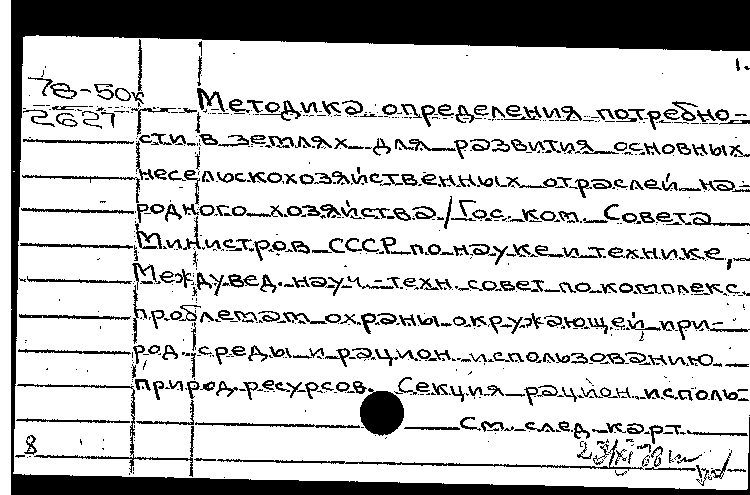 1.
78-50к
2621
Методика определения потребно-
сти в землях для развития основных
несельскохозяйственных отраслей на-
родного хозяйства/Гос. ком. Совета
Министров СССР по науке и технике,
Междувед. науч.-техн. совет по комплекс.
проблемам охраны окружающей при-
род. среды и рацион. использованию
природ. ресурсов. Секция рацион. исполь-
См. след. карт.
8
23/XI 78